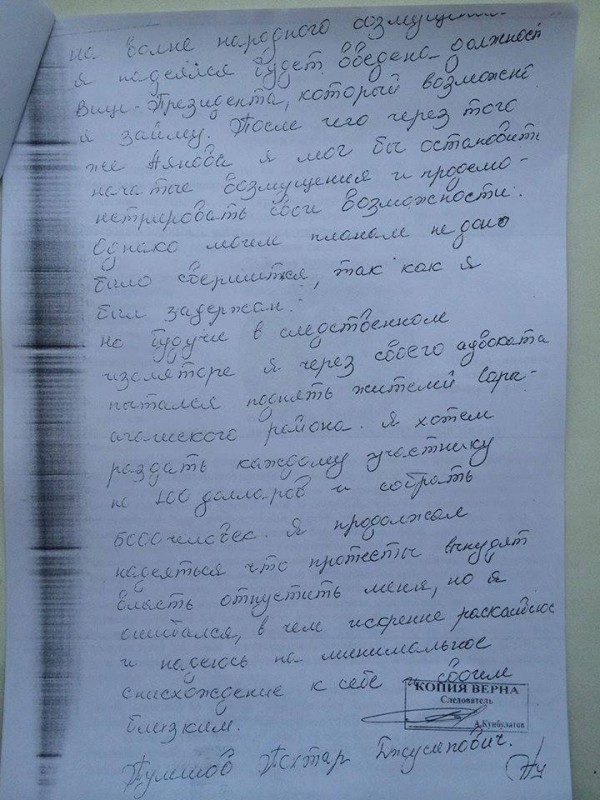 на волне народного возмущения
я надеялся будет введена должность
Вице-Президента, который возможно
я займу. После чего через того
же Аянова я мог бы остановить
начатые возмущения и продемо-
нстрировать свои возможности.
Однако моим планам не дано
было свершиться, так как я
был задержан.
Но будучи в следственном
изоляторе я через своего адвоката
пытался поднять жителей Сары-
агашского района. Я хотел
раздать каждому участнику
по 100 долларов и собрать
6000 человек. Я продолжал
надеяться что протесты вынудят
власть отпустить меня, но я
ошибался, в чем искренне раскаиваюсь
и надеюсь на минимальное
снисхождение к себе и своим
близким.
КОПИЯ ВЕРНА
Следователь
А.Кунбулатов
Тохтар